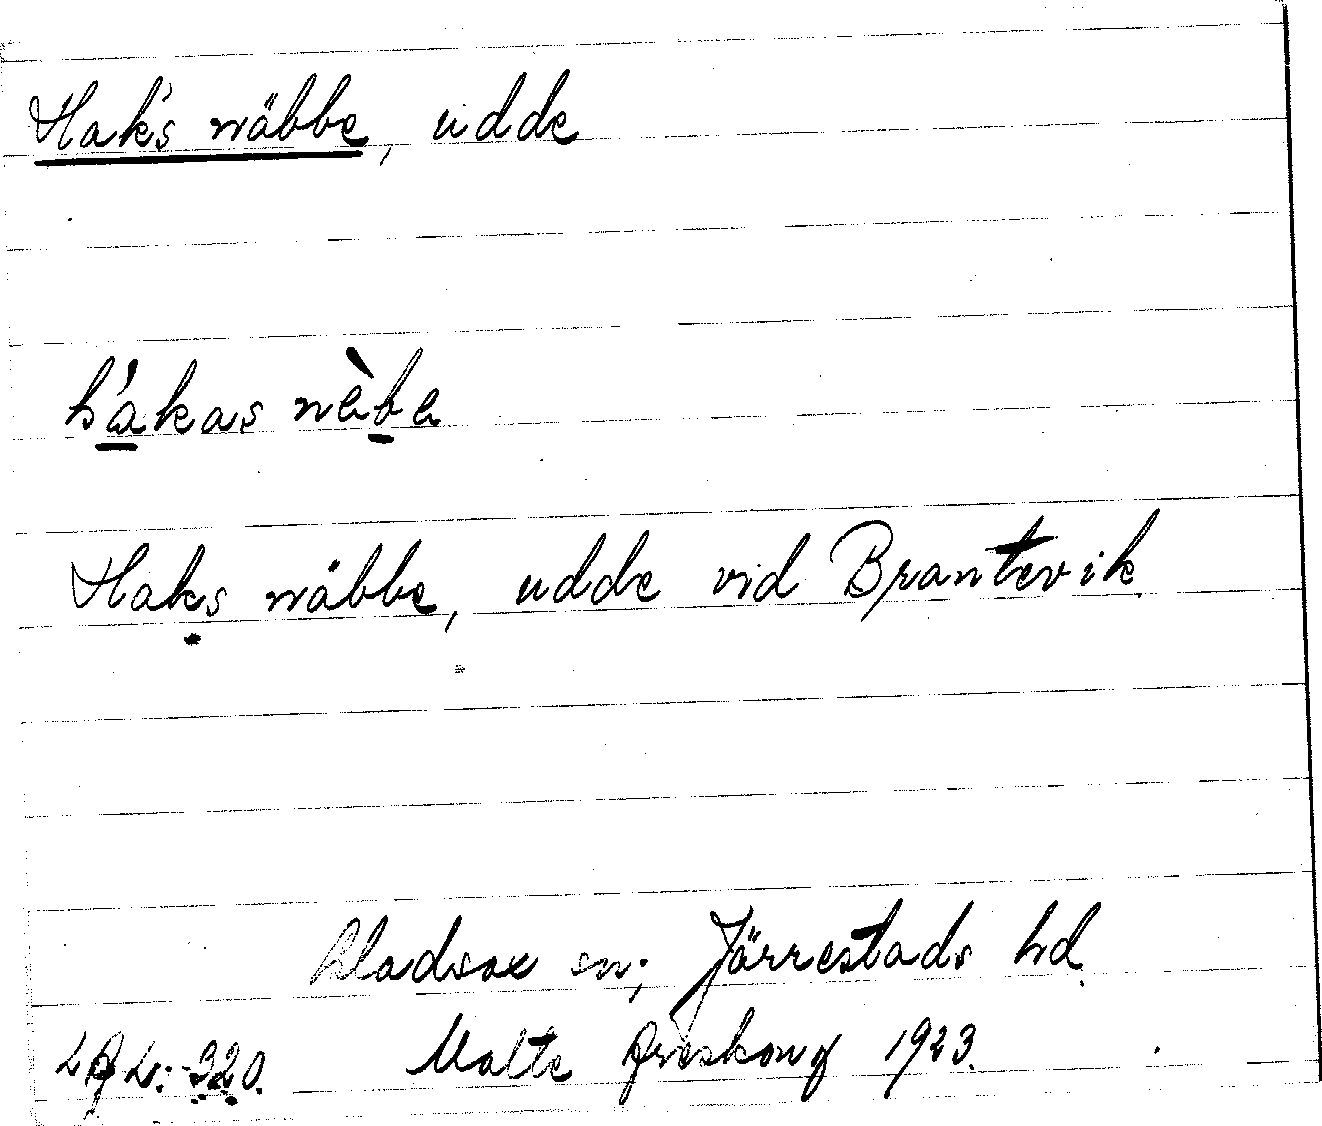 Hak's näbbe, udde
hákas nèbe
Haks näbbe, udde vid Brantevik
Gladsax sn; Järrestads hd.
320. Malte Areskoug 1923.